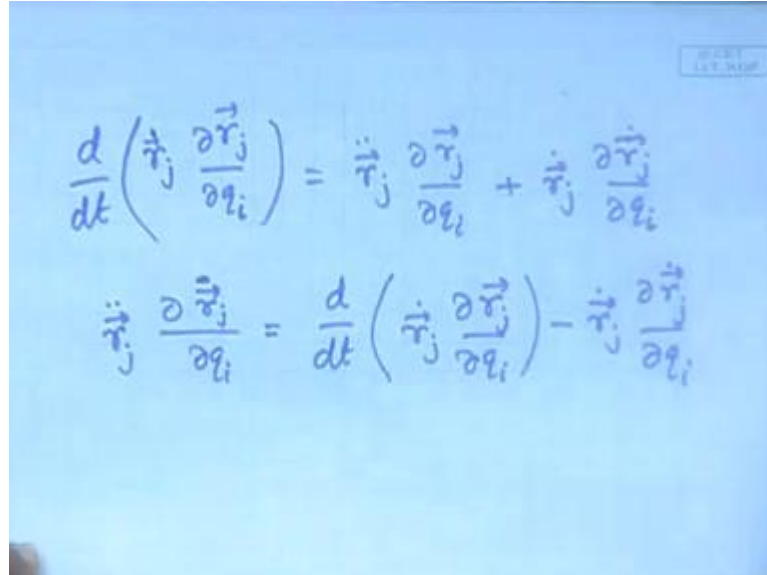 d/dt ( \dot{\vec{r}}_j ∂\vec{r}_j/∂q_i ) = \ddot{\vec{r}}_j ∂\vec{r}_j/∂q_i + \dot{\vec{r}}_j ∂\dot{\vec{r}}_j/∂q_i
\ddot{\vec{r}}_j ∂\vec{r}_j/∂q_i = d/dt ( \dot{\vec{r}}_j ∂\vec{r}_j/∂q_i ) - \dot{\vec{r}}_j ∂\dot{\vec{r}}_j/∂q_i